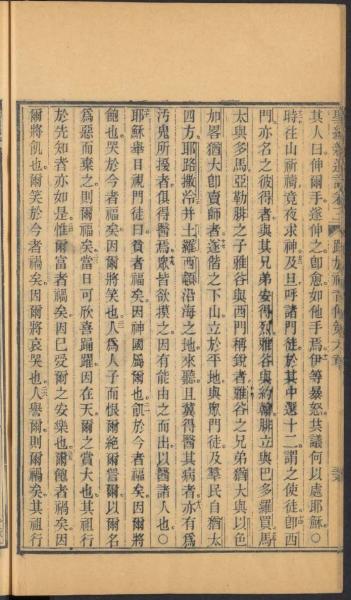 其人曰伸爾手遂伸之卽愈如他手焉伊等暴怒共議何以處耶穌○
時往山祈禱竟夜求神及旦呼諸門徒於其中選十二謂之使徒卽西
門亦名之彼得者與其兄弟安得烈雅谷與約翰腓立與巴多羅買馬
太與多馬亞勒腓之子雅谷與西門稱銳者雅谷之兄弟猶大與以色
加畧猶大卽賣師者遂偕之下山立於平地與眾門徒及羣民自猶太
四方耶路撒冷并土羅西頓沿海之地來聽且冀得醫其病者亦有為
汚鬼所擾者俱得醫焉眾皆欲摸之因有能由之而出以醫諸人也○
耶穌舉目視門徒曰貧者福矣因神國屬爾也飢於今者福矣因爾將
飽也哭於今者福矣因爾將笑也人為人子而恨爾絕爾詈爾以爾名
為惡而棄之則爾福矣當日可欣喜踊躍因在天爾之賞大也其祖行
於先知者亦如是惟爾富者禍矣因已受爾之安樂也爾飽者禍矣因
爾將飢也爾笑於今者禍矣因爾將哀哭也人譽爾則爾禍矣其祖行